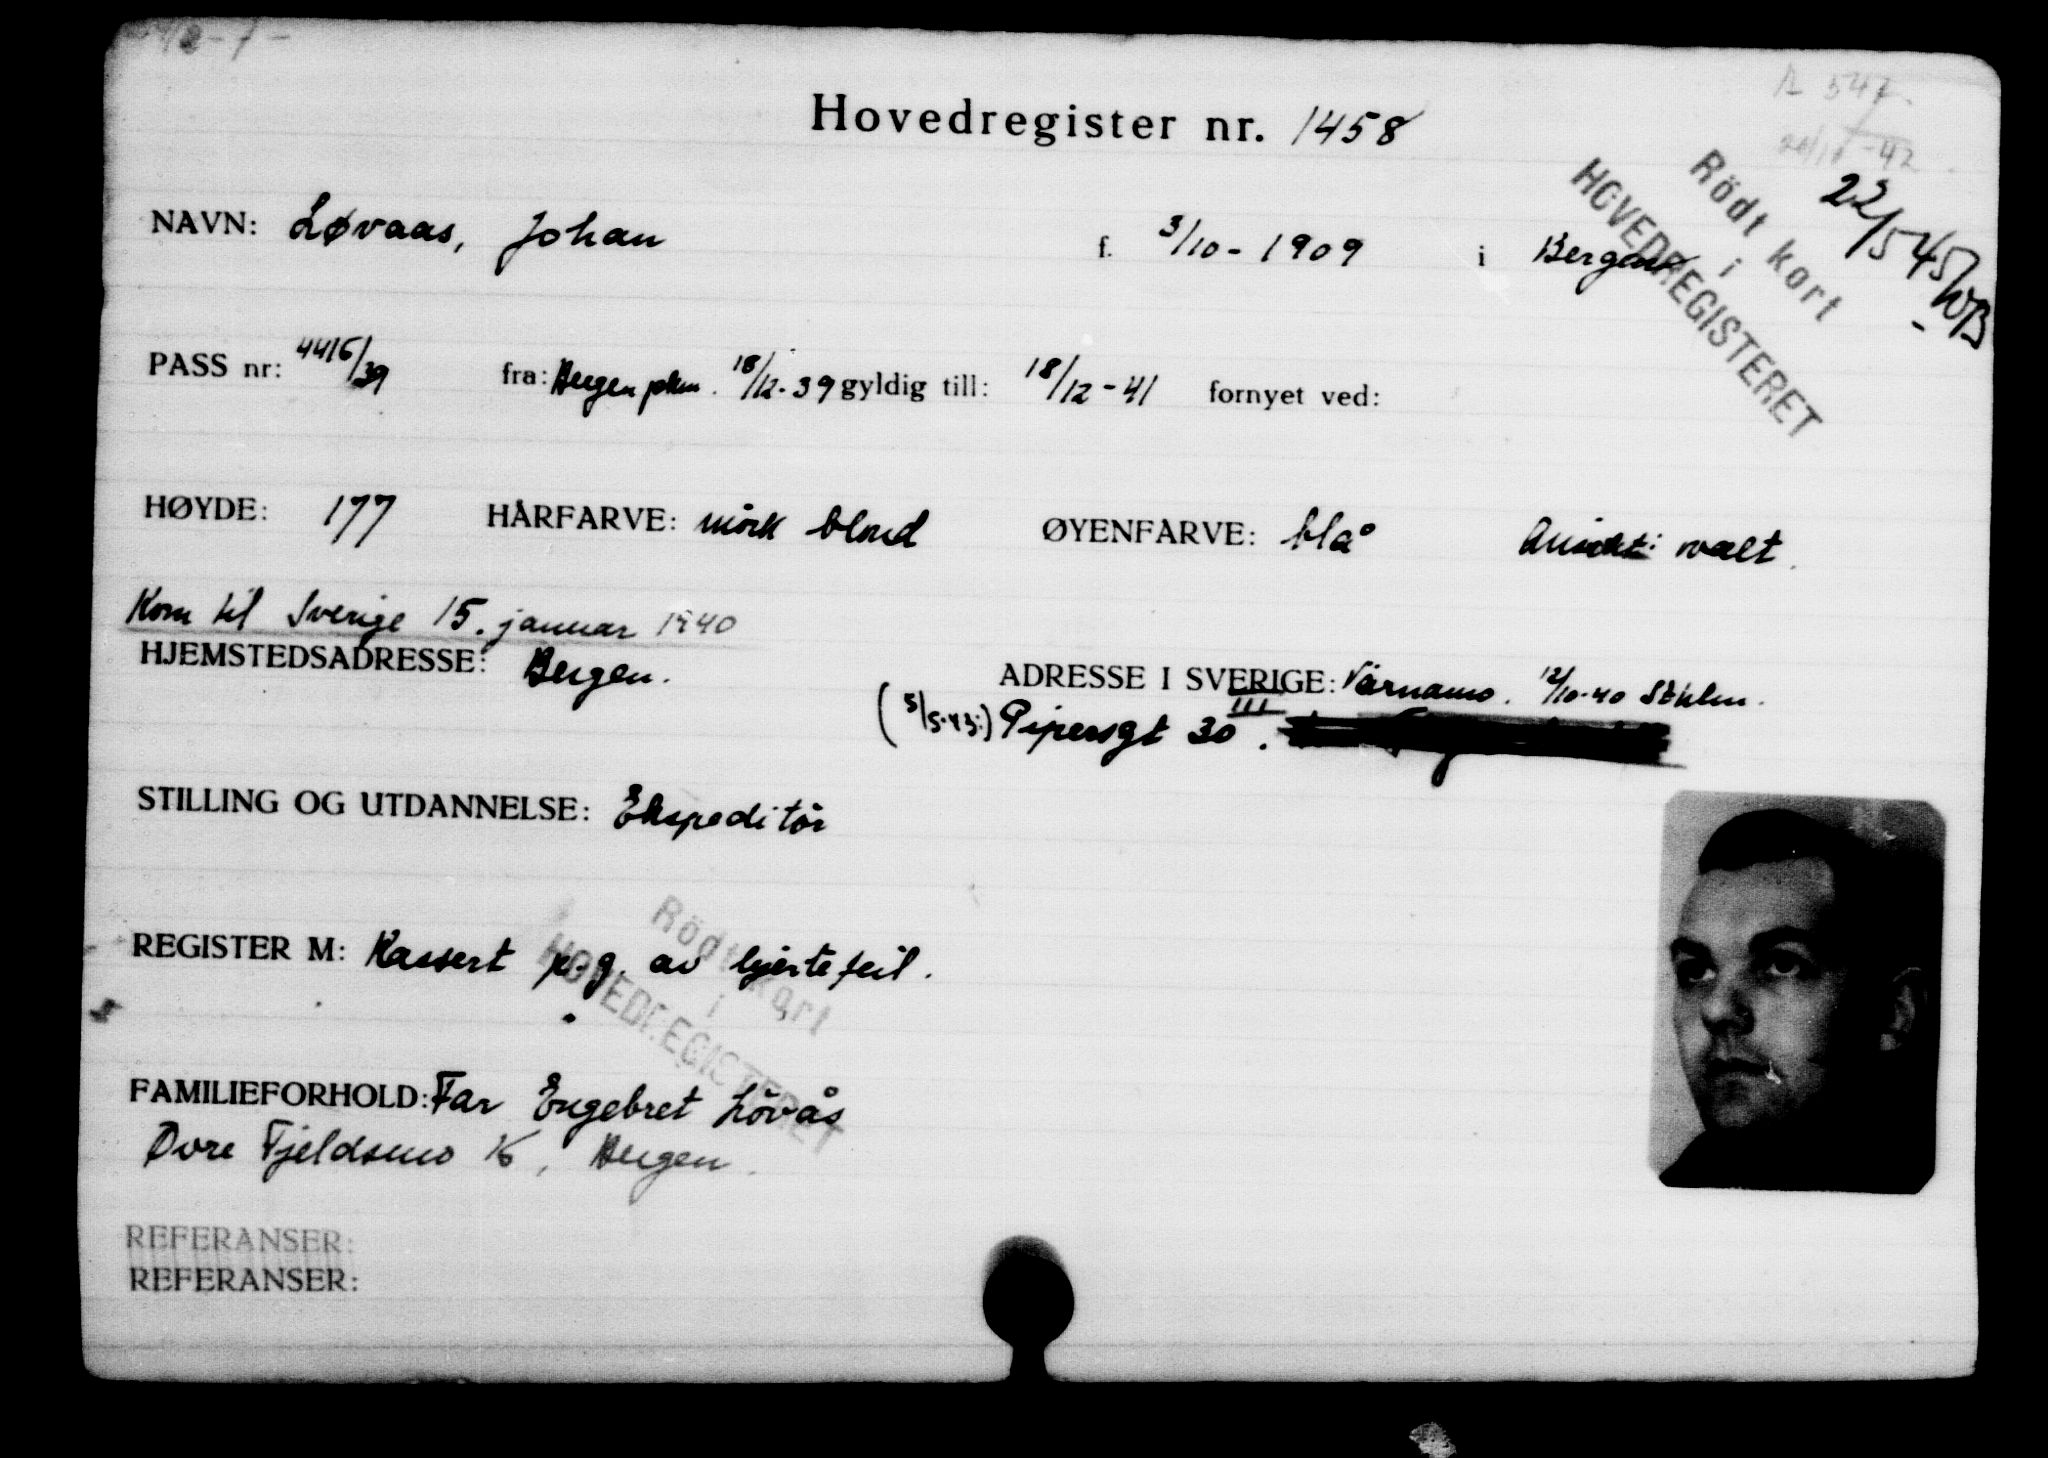 Hovedregister nr. 1458
R 547
22/5 45/WB
Rödt kort
i
HOVEDREGISTERET
NAVN: Løvaas, Johan f. 3/10 - 1909 i Bergen
PASS nr: 4416/39 fra: Bergen pkm. 18/12-39 gyldig till: 18/12-41 fornyet ved:
HØYDE: 177 HÅRFARVE: mörk blond ØYENFARVE: blå Ansikt: ovalt.
Kom til Sverige 15. januar 1940
HJEMSTEDSADRESSE: Bergen. ADRESSE I SVERIGE: Värnamo. 12/10-40 Sthlm.
(5/5-43:) Pipersgt 30 III.
STILLING OG UTDANNELSE: Ekspeditör
REGISTER M: Kassert p.g. av hjertefeil.
Rödt kort
i
HOVEDREGISTERET
FAMILIEFORHOLD: Far Engebret Lövås
Øvre Fjeldsmo 16, Bergen.
REFERANSER:
REFERANSER: